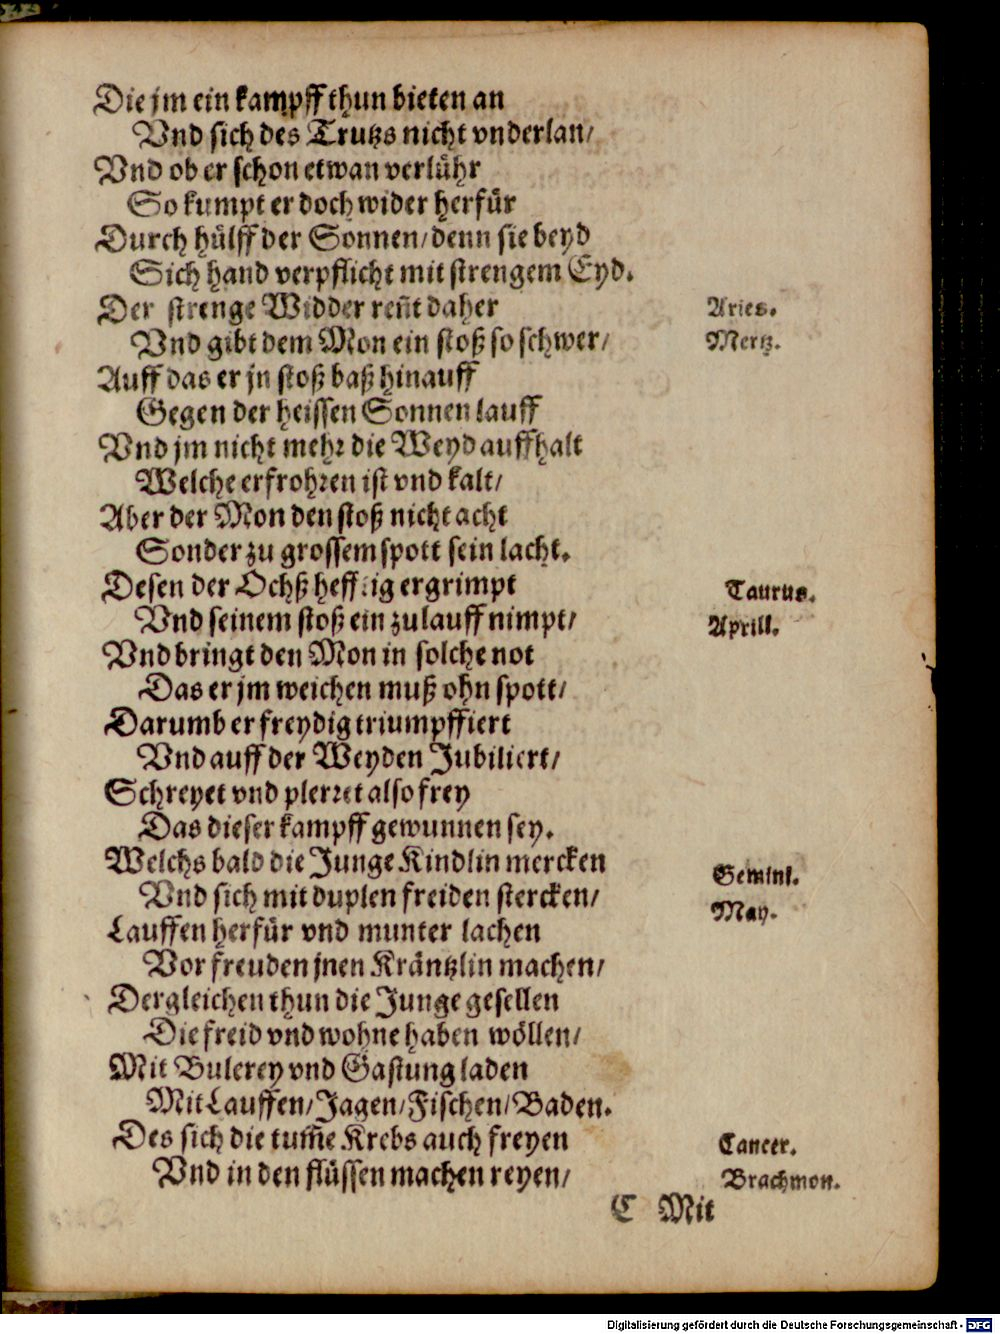 Die jm ein kampff thun bieten an
Vnd sich des Trutzs nicht vnderlan/
Vnd ob er schon etwan verlühr
So kumpt er doch wider herfür
Durch hülff der Sonnen/denn sie beyd
Sich hand verpflicht mit strengem Eyd.
Der strenge Widder reñt daher
Aries.
Vnd gibt dem Mon ein stoß so schwer/
Mertz.
Auff das er jn stoß baß hinauff
Gegen der heissen Sonnen lauff
Vnd jm nicht mehr die Weyd auffhalt
Welche erfrohren ist vnd kalt/
Aber der Mon den stoß nicht acht
Sonder zu grossem spott sein lacht.
Desen der Ochß hefftig ergrimpt
Taurus.
Vnd seinem stoß ein zulauff nimpt/
Aprill.
Vnd bringt den Mon in solche not
Das er jm weichen muß ohn spott/
Darumb er freydig triumpffiert
Vnd auff der Weyden Jubiliert/
Schreyet vnd plerret also frey
Das dieser kampff gewunnen sey.
Welchs bald die Junge Kindlin mercken
Gemini.
Vnd sich mit duplen freiden stercken/
May.
Lauffen herfür vnd munter lachen
Vor freuden jnen Kräntzlin machen/
Dergleichen thun die Junge gesellen
Die freid vnd wohne haben wöllen/
Mit Bulerey vnd Gastung laden
Mit Lauffen/Jagen/Fischen/Baden.
Des sich die tum̃e Krebs auch freyen
Cancer.
Vnd in den flüssen machen reyen/
Brachmon.
C Mit
Digitalisierung gefördert durch die Deutsche Forschungsgemeinschaft - DFG